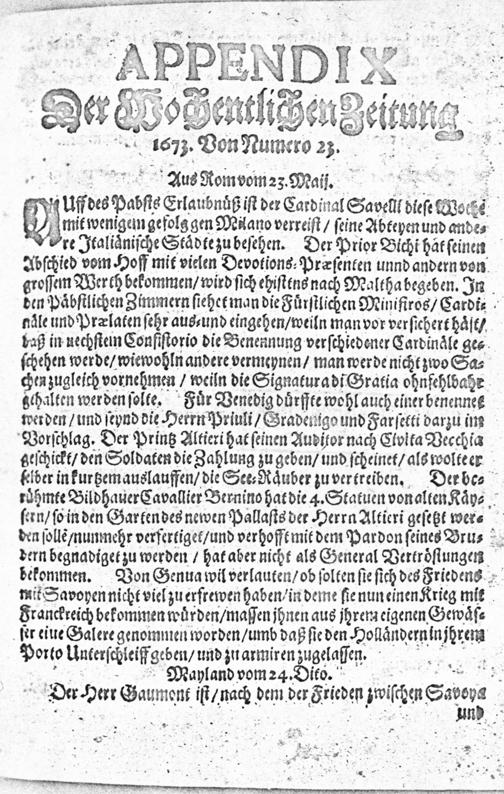 APPENDIX
Der Wochentlichen Zeitung
1673. Von Numero 23.
Aus Rom vom 23. Maij.
AUff des Pabsts Erlaubnüß ist der Cardinal Savelli diese Woche
mit wenigem gefolg gen Milano verreist / seine Abteyen und ande-
re Italiänische Städte zu besehen. Der Prior Bichi hat seinen
Abschied vom Hoff mit vielen Devotions-Præsenten unnd andern von
grossem Werth bekommen / wird sich ehistns nach Maltha begeben. In
den Päbstlichen Zimmern siehet man die Fürstlichen Ministros / Cardi-
näle und Prælaten sehr aus-und eingehen / weiln man vor versichert hält /
daß in nechstein Consistorio die Benennung verschiedener Cardinäle ge-
schehen werde / wiewohln andere vermeynen / man werde nicht zwo Sa-
chen zugleich vornehmen / weiln die Signatura di Gratia ohnfehlbahr
gehalten werden solte. Für Venedig dürffte wohl auch einer benennet
werden / und seynd die Herrn Priuli / Gradenigo und Farsetti darzu im
Vorschlag. Der Printz Altieri hat seinen Auditor nach Civita Vecchia
geschickt / den Soldaten die Zahlung zu geben / und scheinet / als wolte er
selber in kurtzem auslauffen / die See-Räuber zu vertreiben. Der be-
rühmte Bildhauer Cavallier Bernino hat die 4. Statuen von alten Käy-
sern / so in den Garten des newen Pallasts der Herrn Altieri gesetzt wer-
den solle / nunmehr verfertiget / und verhofft mit dem Pardon seines Bru-
dern begnadiget zu werden / hat aber nicht als General Vertröstungen
bekommen. Von Genua wil verlauten / ob solten sie sich des Friedens
mit Savoyen nicht viel zu erfrewen haben / in deme sie nun einen Krieg mit
Franckreich bekommen würden / massen jhnen aus jhrem eigenen Gewäs-
ser eine Galere genommen worden / umb daß sie den Holländern in jhrem
Porto Unterschleiff geben / und zu armiren zugelassen.
Mayland vom 24. Dito.
Der Herr Gaumont ist / nach dem der Frieden zwischen Savoya
und